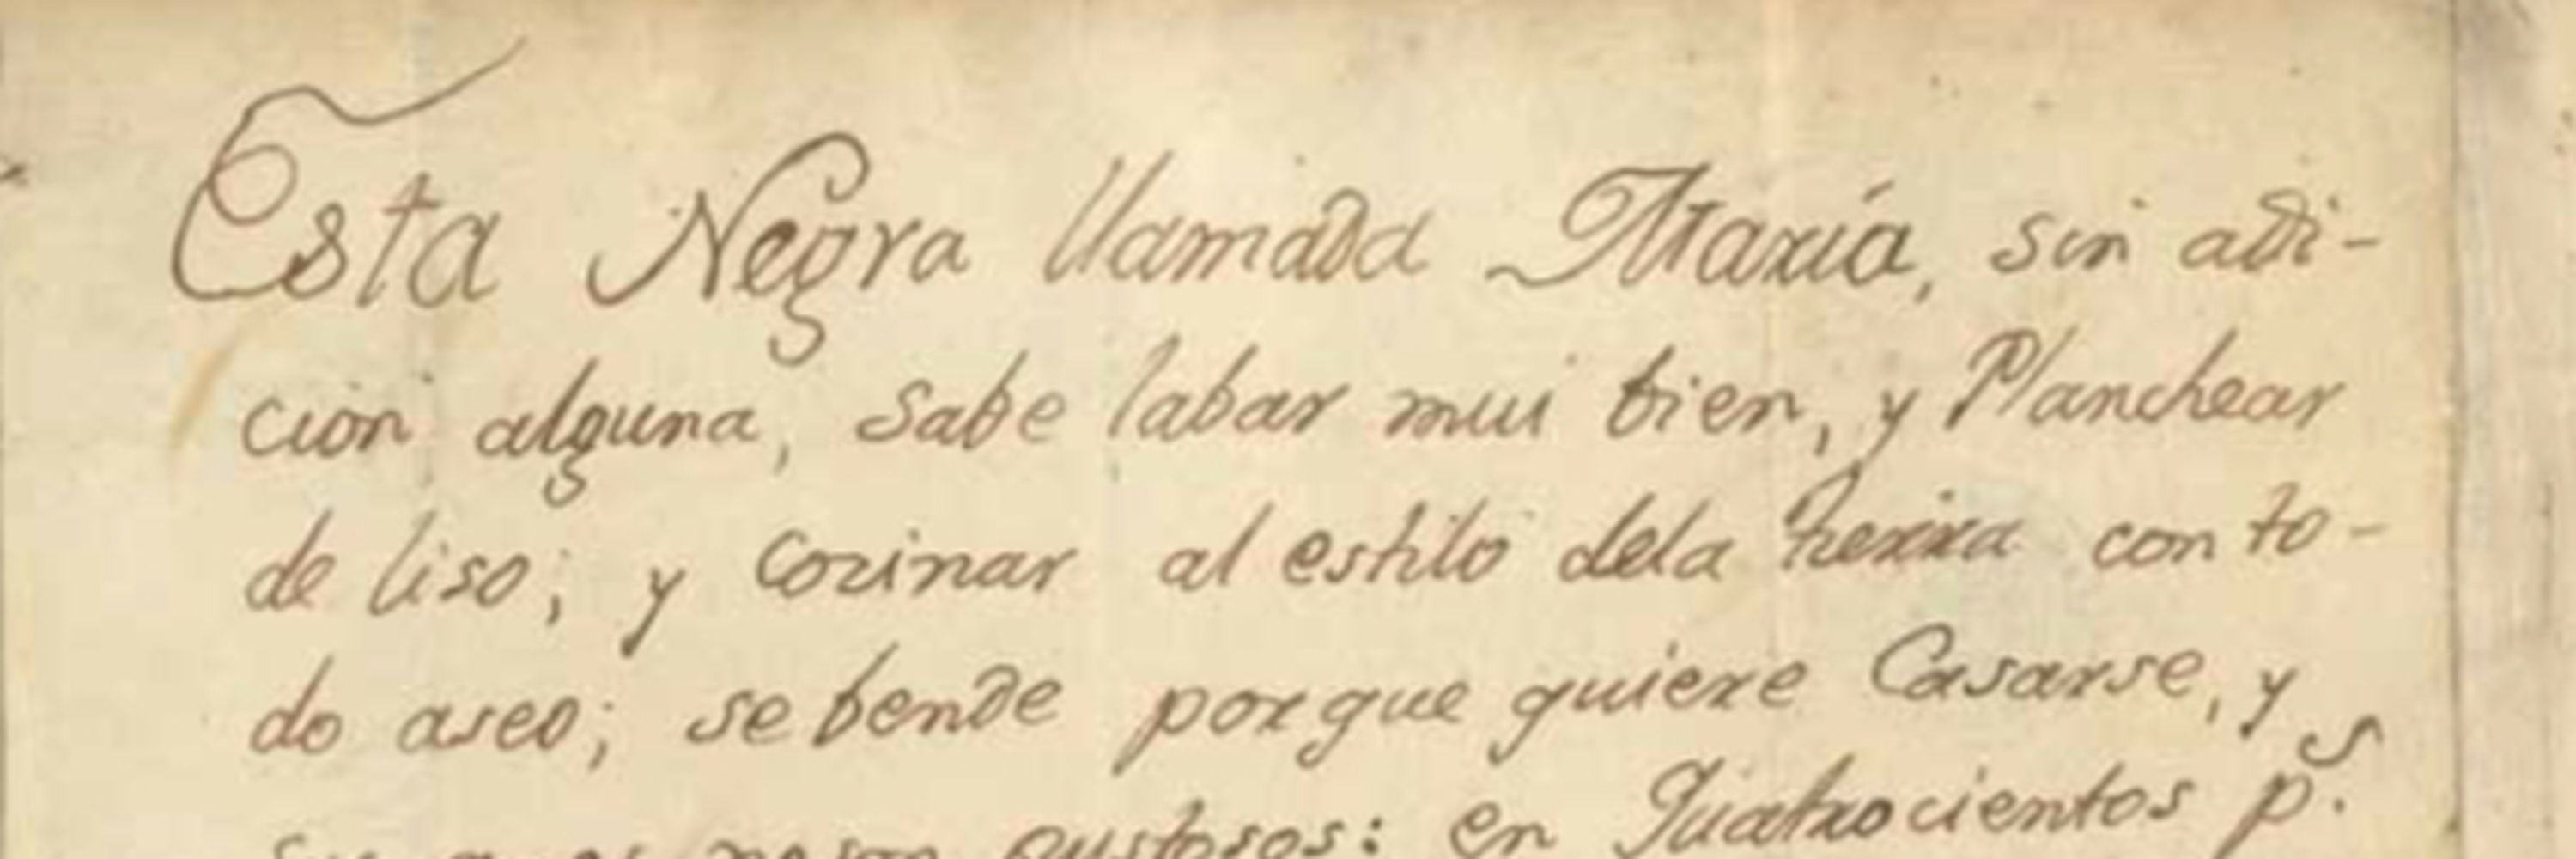 Esta Negra llamada María, sin adi-
cion alguna, sabe labar mui bien, y Planchear
de liso; y cozinar al estilo dela tierra con to-
do aseo; se bende porque quiere Casarse, y
gustosos: en Quatrocientos p.s